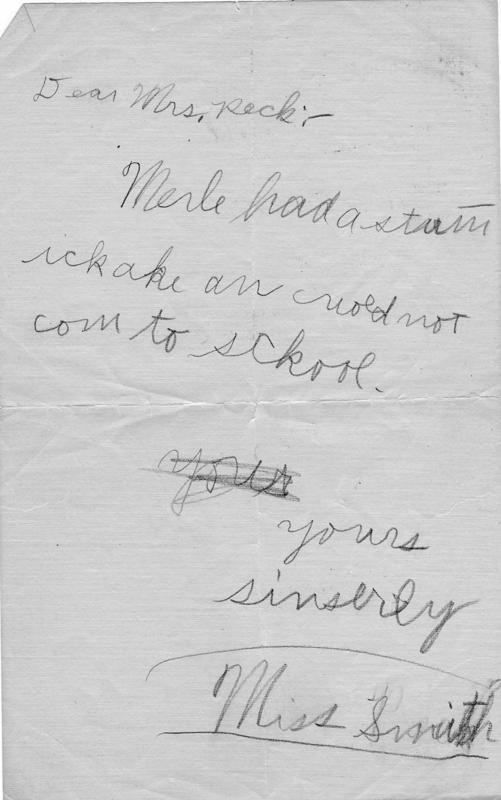 Dear Mrs. Reck:-
Merle had a stum
ickake an cuold not
com to sckool.
your
yours
sinserly
Miss Smith